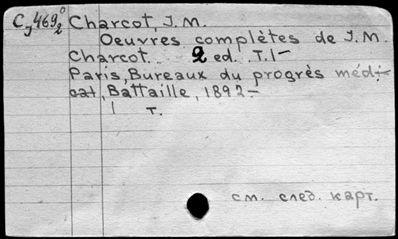 Charcot, J.M.
Oeuvres complètes de J.M.
Charcot. 2 ed. T.1-
Paris, Bureaux du progrès médi-
cat, Battaille, 1892-
1 т.
см. след. карт.